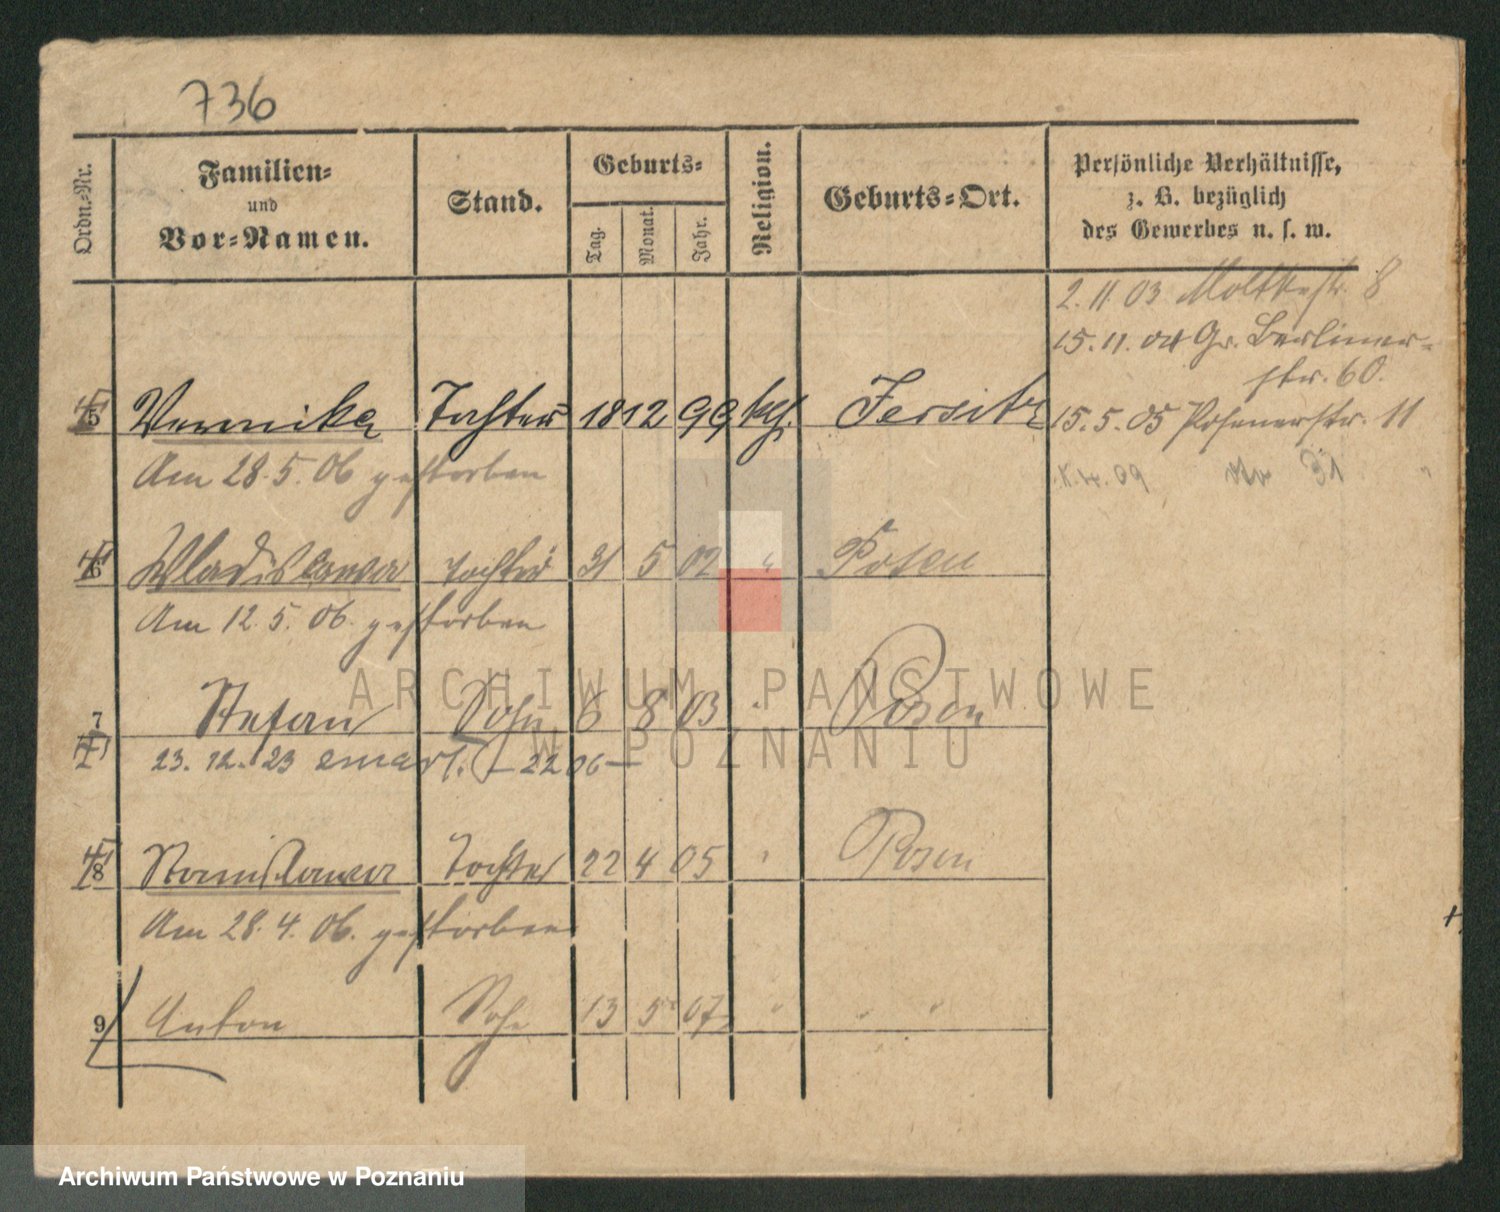 736
Ordn.-Nr.
Familien-
und
Vor-Namen.
Stand.
Geburts-
Tag.
Monat.
Jahr.
Religion.
Geburts-Ort.
Persönliche Verhältnisse,
z. B. bezüglich
des Gewerbes u. s. w.
2. 11. 03 Moltkestr. 8
15. 11. 04 Gr. Berliner-
str. 60.
15. 5. 05 Posenerstr. 11
4. 09 31 "
5 Veronika Tochter 18 12 99 kath. Jersitz
Am 28. 5. 06 gestorben
6 Wladislawa Tochter 31 5 02 " Posen
Am 12. 5. 06. gestorben
7 Stefan Sohn 6 8 03 " Posen
23. 12. 23 zmarł.
8 Stanislawa Tochter 22 4 05 " Posen
Am 28. 4. 06. gestorben
9 Anton Sohn 13 5 07 " " "
ARCHIWUM PAŃSTWOWE
W POZNANIU
Archiwum Państwowe w Poznaniu